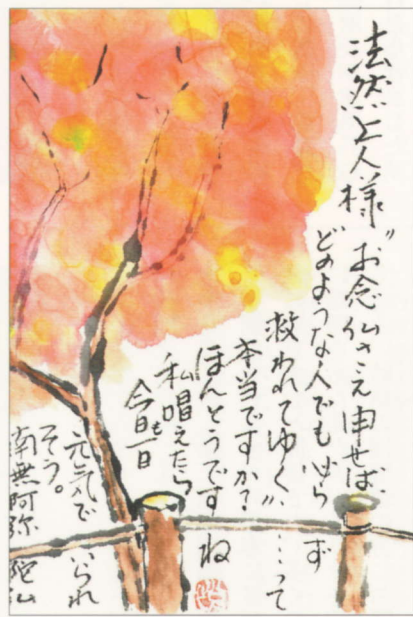 法然上人様
〝お念仏さえ申せば、
どのような人でも必らず
救われてゆく〟……って
本当ですか?
ほんとうですね
私唱えたら
今日も一日
元気でいられ
そう。
南無阿弥陀仏